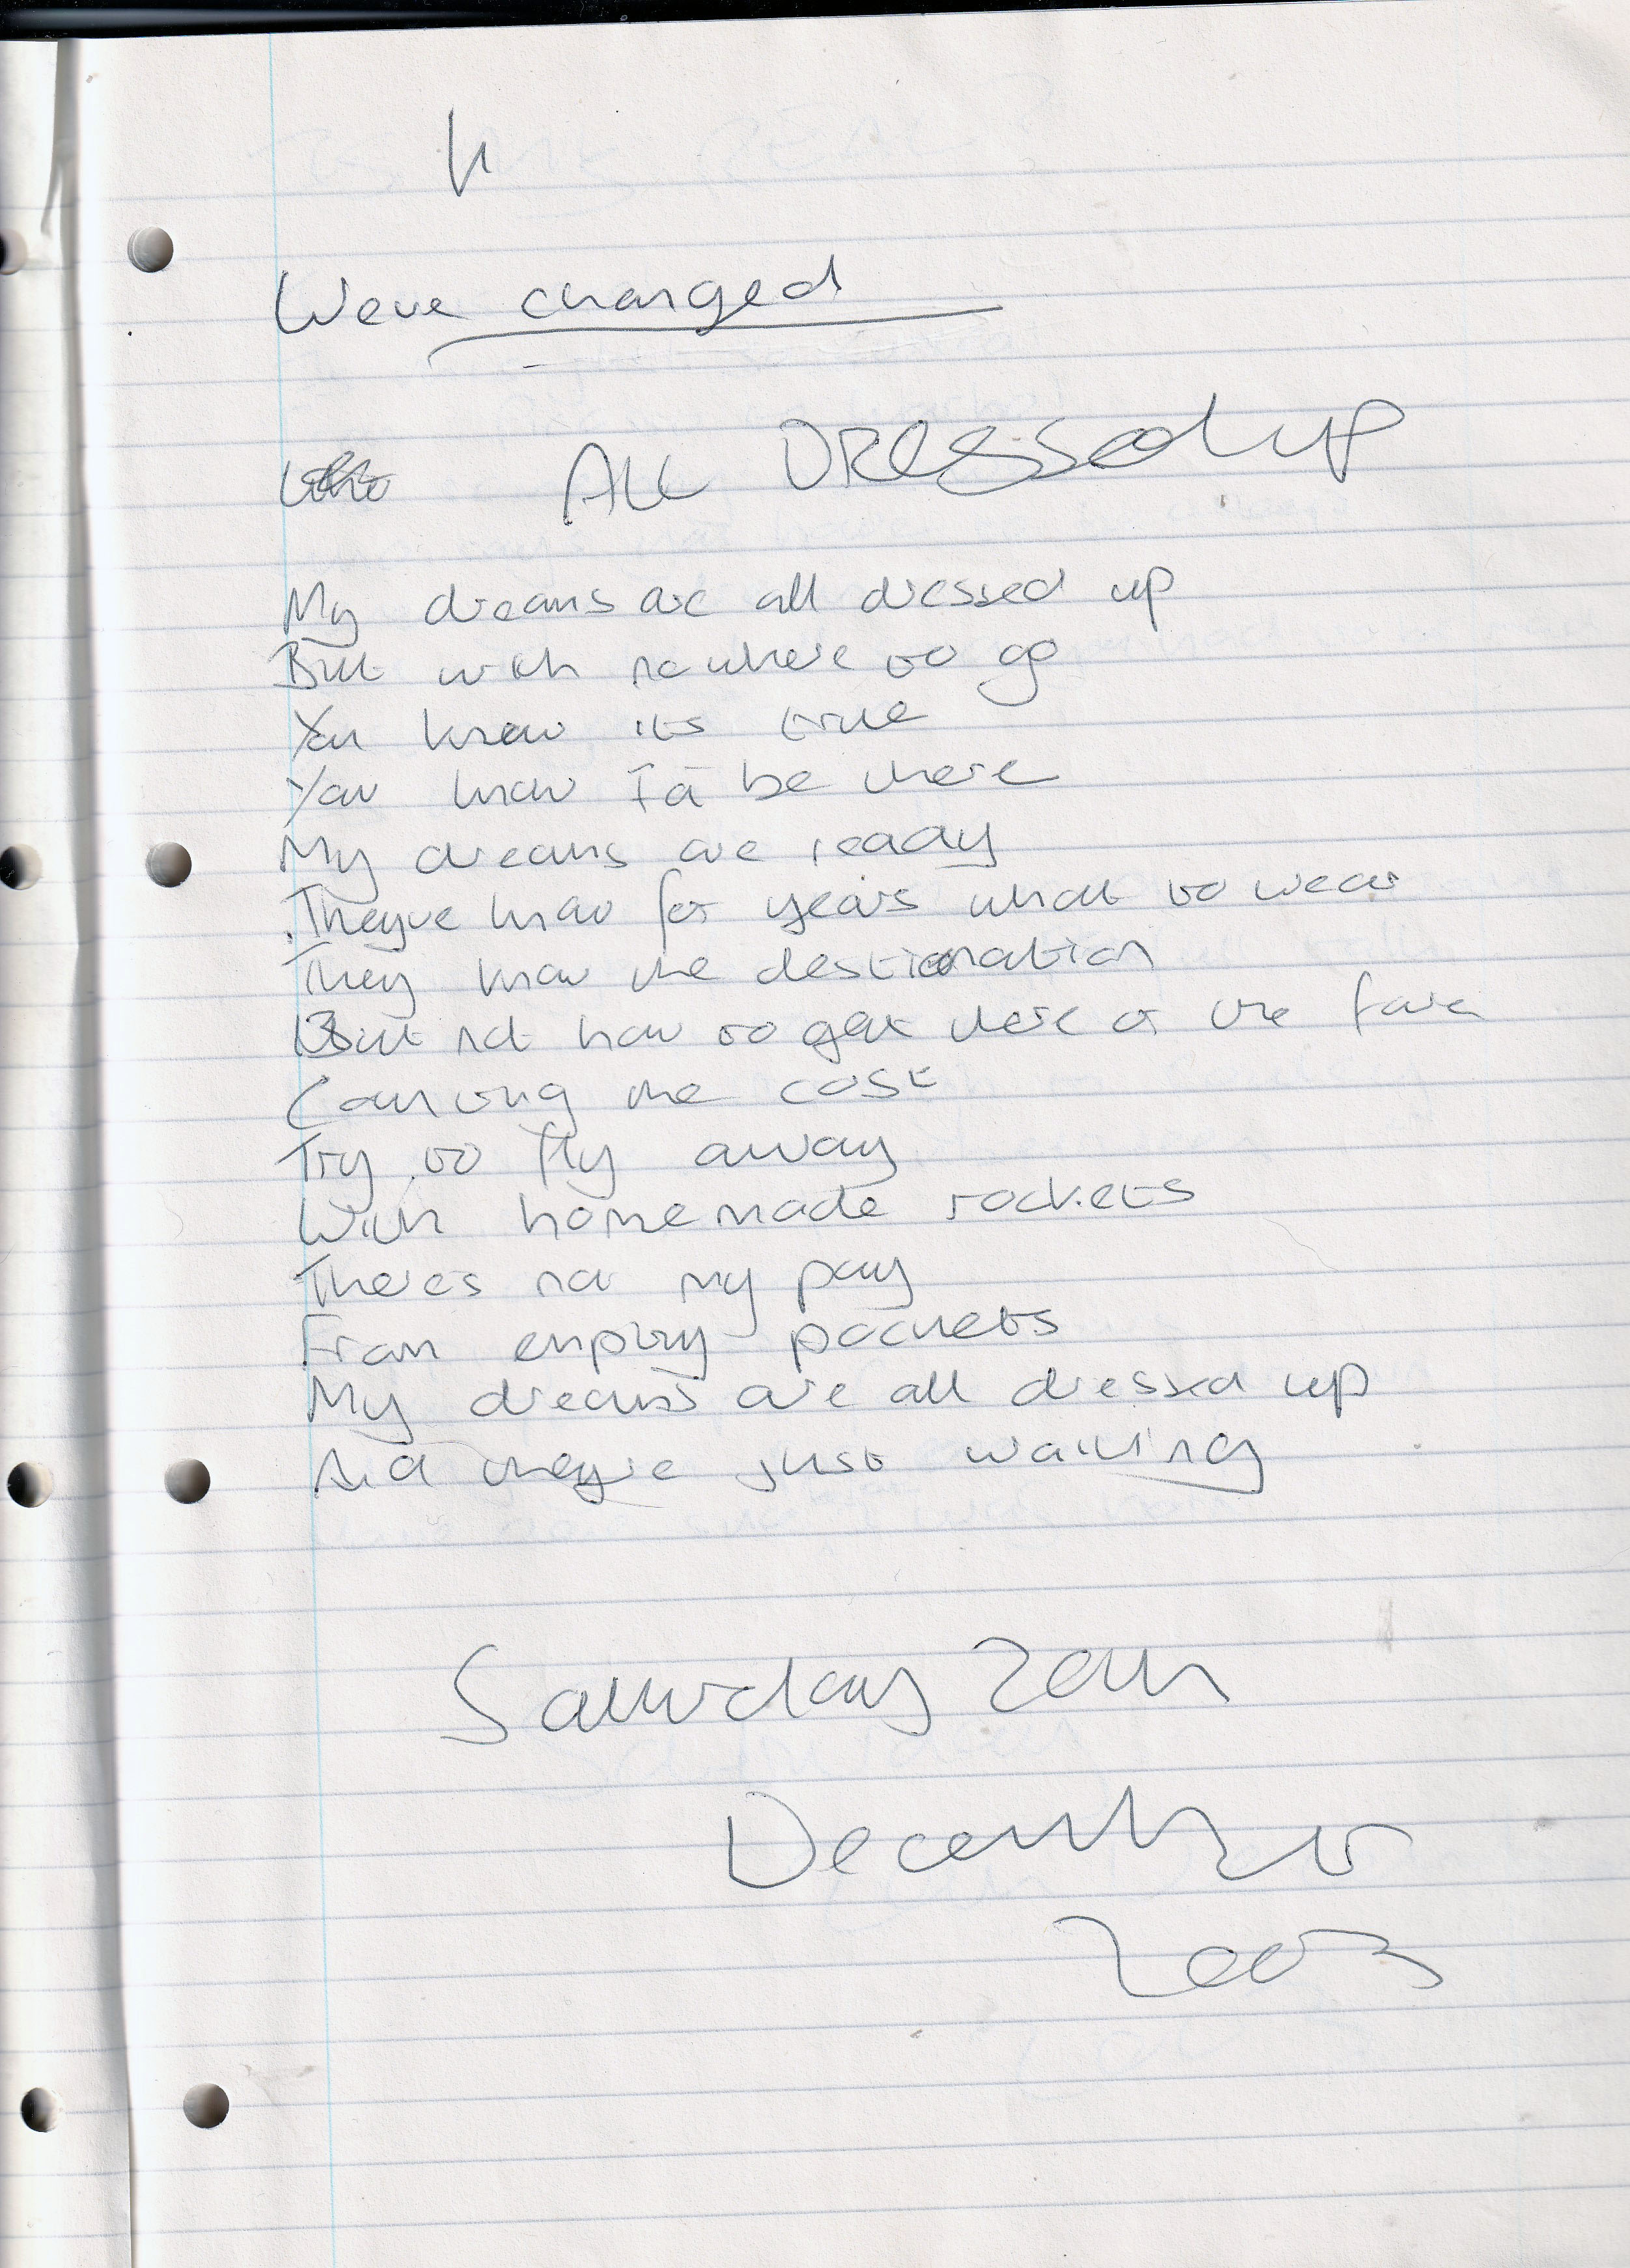 Weve changed
ALL DRessed up
My dreams are all dressed up
But with nowhere to go
You know its true
You know I'd be there
My dreams are ready
Theyve know for years what to wear
They know the destination
But not how to get there or the fare
Counting the cost
Try to fly away
With homemade rockets
There's not my pay
From empty pockets
My dreams are all dressed up
And they're just waiting
Saturday 20th
December
2003